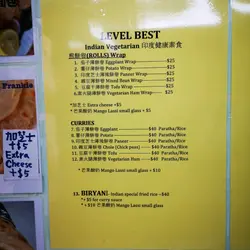 LEVEL BEST
Indian Vegetarian 印度健康素食
煎餅卷(ROLLS) Wrap
1. 茄子薄餅卷 Eggplant Wrap $25
2. 薯仔薄餅卷 Potato Wrap $25
3. 印度芝士薄餅卷 Paneer Wrap $25
4. 雜豆薄餅卷 Mixed Bean Wrap $25
5. 豆腐干薄餅卷 Tofu Wrap $25
6. 素火腿薄餅卷 Vegetarian Ham Wrap $25
*加芝士 Extra cheese +$5
*芒果酸奶 Mango Lassi small glass + $5
CURRIES
7. 茄子薄餅卷 Eggplant $40 Paratha/Rice
8. 薯仔薄餅卷 Potato $40 Paratha/Rice
9. 印度芝士薄餅卷 Paneer $40 Paratha/Rice
10. Chole (Chick peas) $40 Paratha/Rice
11. 豆腐干薄餅卷 Tofu $40 Paratha/Rice
12. 素火腿薄餅卷 Vegetarian Ham $40 Paratha/Rice
* 芒果酸奶 Mango Lassi small glass + $10
13. BIRYANI- Indian special fried rice $40
* + $5 for curry sauce
* + $10 芒果酸奶 Mango Lassi small glass
Frankie
加芝士
+$5
Extra
Cheese
+$5